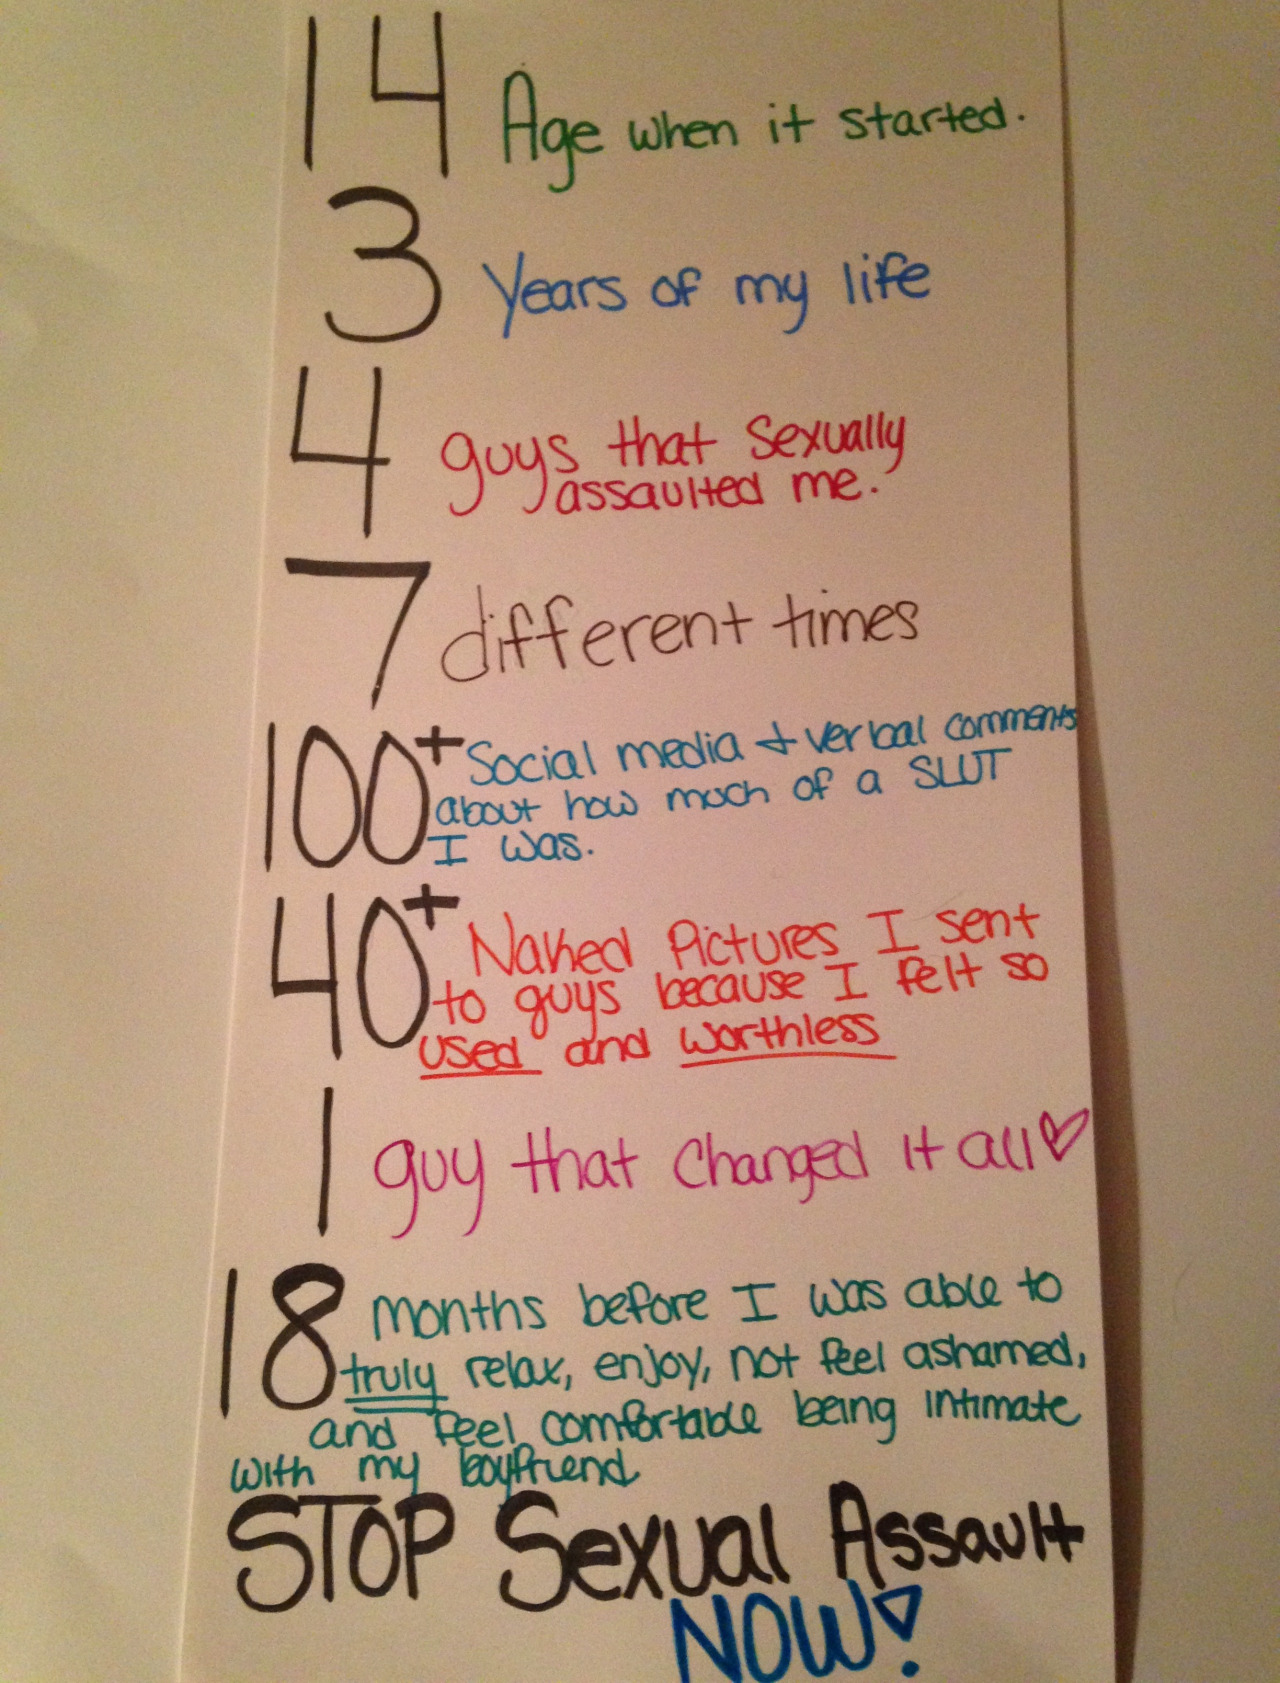 14 Age when it started.
3 Years of my life
4 guys that sexually
assaulted me.
7 different times
100+ Social media + verbal comments
about how much of a SLUT
I was.
40+ Naked Pictures I sent
to guys because I felt so
used and worthless
1 guy that changed it all♡
18 months before I was able to
truly relax, enjoy, not feel ashamed,
and feel comfortable being intimate
with my boyfriend
STOP Sexual Assault
NOW!